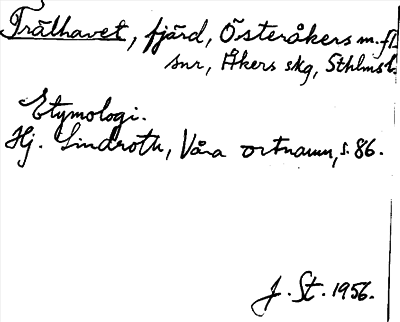 Trälhavet, fjärd, Österåkers m. fl.
snr, Åkers skg, Sthlms l.
Etymologi.
Hj. Lindroth, Våra ortnamn, s. 86.
J. St. 1956.